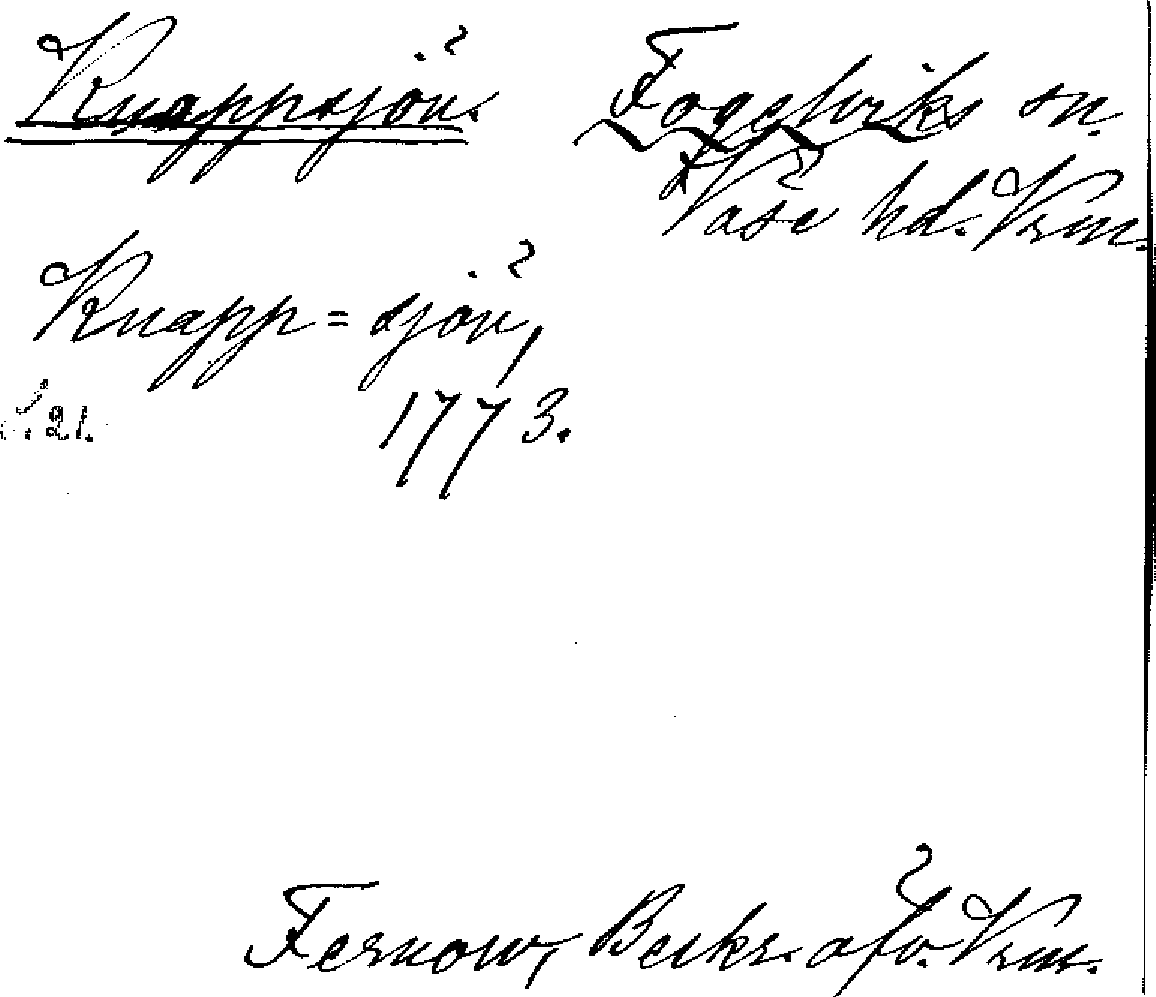 Knappsjön. Fogelviks sn.
Väse hd. Vrm.
Knapp=sjön,
S. 21. 1773.
Fernow, Beskr. öfv. Vrm.